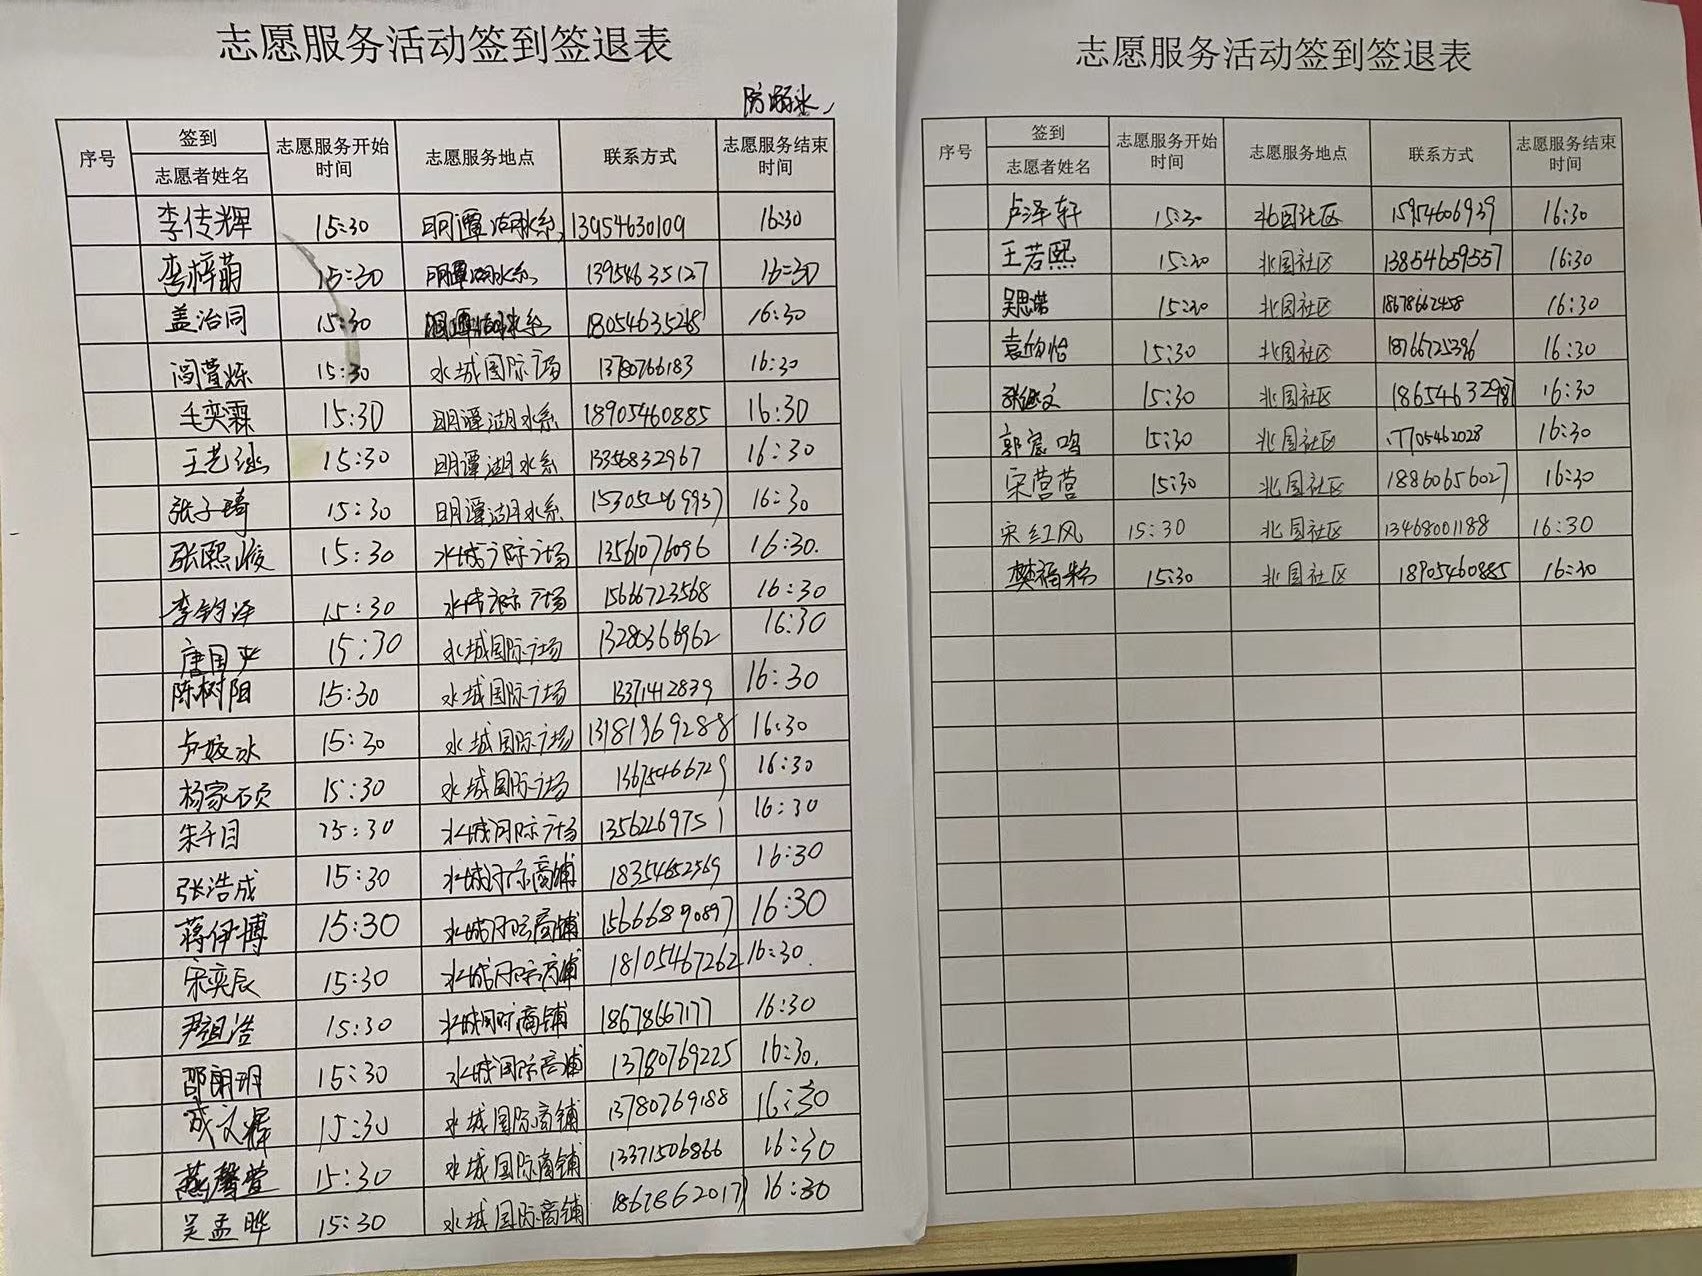 志愿服务活动签到签退表
防溺水
序号 签到 志愿者姓名 志愿服务开始时间 志愿服务地点 联系方式 志愿服务结束时间
李传辉 15:30 明潭湖水系 13954630109 16:30
李梓萌 15:30 明潭湖水系 13954635127 16:30
盖治同 15:30 16:30
阎萱烁 15:30 水城国际广场 13780766183 16:30
毛奕霖 15:30 明潭湖水系 18905460885 16:30
王艺涵 15:30 明潭湖水系 13356832967 16:30
张子琦 15:30 明潭湖水系 15305469937 16:30
张熙峻 15:30 水城广际广场 13561076096 16:30.
李钧泽 15:30 广场 15666723568 16:30
唐国严 15:30 水城国际广场 13280366962 16:30
陈树阳 15:30 水城国际广场 13371412839 16:30
卢姣冰 15:30 水城国际广场 13181369288 16:30
杨家硕 15:30 水城国际广场 13675466729 16:30
朱子目 15:30 水城国际广场 13562269751 16:30
张浩成 15:30 水城国际商铺 18354652569 16:30
蒋伊博 15:30 水城国际商铺 15666890897 16:30
宋奕辰 15:30 水城国际商铺 18105467262 16:30.
尹祖浩 15:30 水城国际商铺 18678667177 16:30
邵朗玥 15:30 水城国际商铺 13780769225 16:30.
成文樨 15:30 水城国际商铺 13780769188 16:30
燕馨萱 15:30 水城国际商铺 13371506866 16:30
吴孟晔 15:30 水城国际商铺 18678620171 16:30
志愿服务活动签到签退表
序号 签到 志愿者姓名 志愿服务开始时间 志愿服务地点 联系方式 志愿服务结束时间
卢泽轩 15:30 北国社区 15954606939 16:30
王若熙 15:30 北国社区 13854659557 16:30
吴思诺 15:30 北国社区 18678662458 16:30
袁昀怡 15:30 北国社区 18766725396 16:30
张继文 15:30 北国社区 16:30
郭宸鸣 15:30 北国社区 17705462028 16:30
宋营营 15:30 北国社区 18860656027 16:30
宋红风 15:30 北国社区 13468001188 16:30
樊福粉 15:30 北国社区 18905460885 16:30